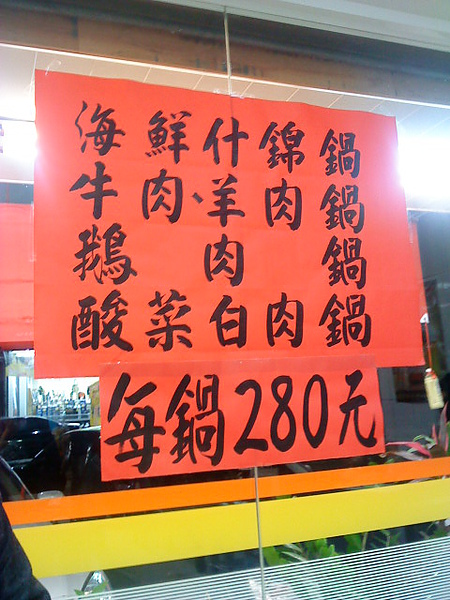 海鮮什錦鍋
牛肉、羊肉鍋
鵝肉鍋
酸菜白肉鍋
每鍋280元